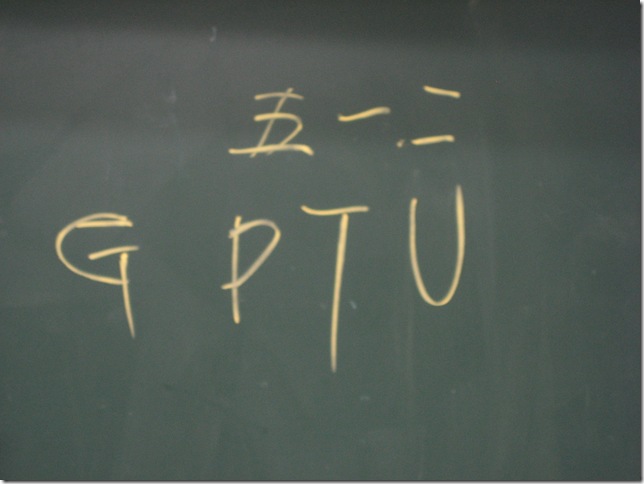 五一二
G P T U